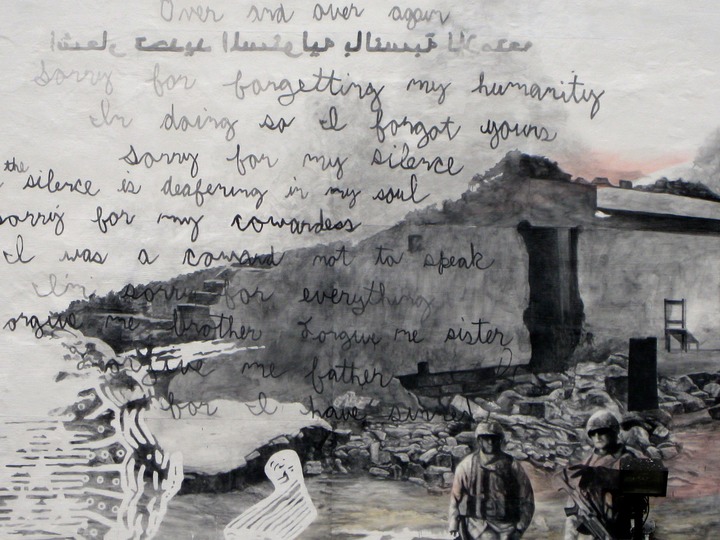 Over and over again
Sorry for forgetting my humanity
In doing so I forgot yours
Sorry for my silence
the silence is deafening in my soul
sorry for my cowardess
I was a coward not to speak
I'm sorry for everything
orgive me brother forgive me sister
Forgive me father
for I have sinned